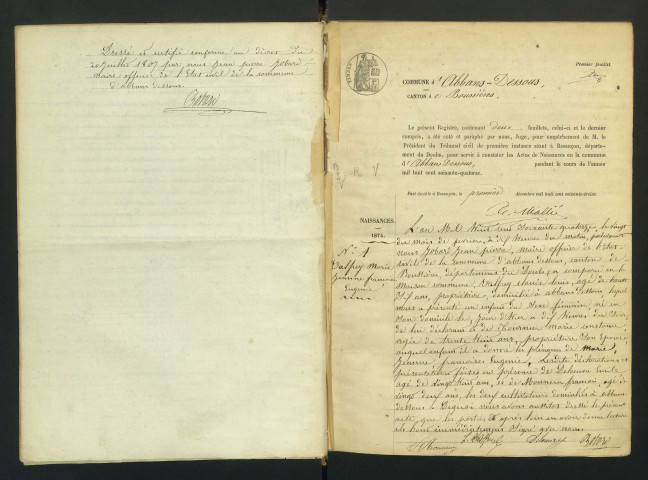 Dressé et certifié conforme au décret du
20 juillet 1807 par nous Jean pierre Jobard
maire officier de l'Etat civil de la commune
d'abbans dessous
Jobard
Premier feuillet.
COMMUNE d'Abbans-Dessous,
CANTON de Boussières.
Le présent Registre, contenant deux feuillets, celui-ci et le dernier
compris, a été coté et paraphé par nous, Juge, pour empêchement de M. le
Président du Tribunal civil de première instance séant à Besançon, départe-
ment du Doubs, pour servir à constater les Actes de Naissances en la commune
d'Abbans-Dessous, pendant le cours de l'année
mil huit cent soixante-quatorze.
Fait double à Besançon, le premier décembre mil huit cent soixante-treize.
NAISSANCES
1874.
N° 1
Marie
Jeanne françoise
Eugenie
L'an Mil huit cent soixante quatorze, le vingt
du mois de fevrier, à dix heures du matin, pardevant
nous Jobard Jean pierre, maire officier de l'etat
civil de la commune d'abbans dessous, canton de
Boussières, département du Doubs, a comparu en la
Maison commune, age de trente
ans, propriétaire, domicilié à abbans dessous, lequel
nous a présenté un enfant du sexe féminin, né en
son domicile le jour d'hier à dix heures du soir,
de lui déclarant et de marie
agée de trente huit ans, propriétaire son Epouse,
auquel enfant il a donné les prénoms de marie,
Jeanne, francoise Eugenie. Lesdites déclaration et
présentation faites en présence de Emile
agé de vingt huit ans, et de Monnier françois, agé de
vingt deux ans, les deux domiciliés à abbans
dessous. Lequel nous avons aussitot dressé le présent
acte que les parties et après leur en avoir donné lecture
ils l'ont signé avec nous.
Jobard